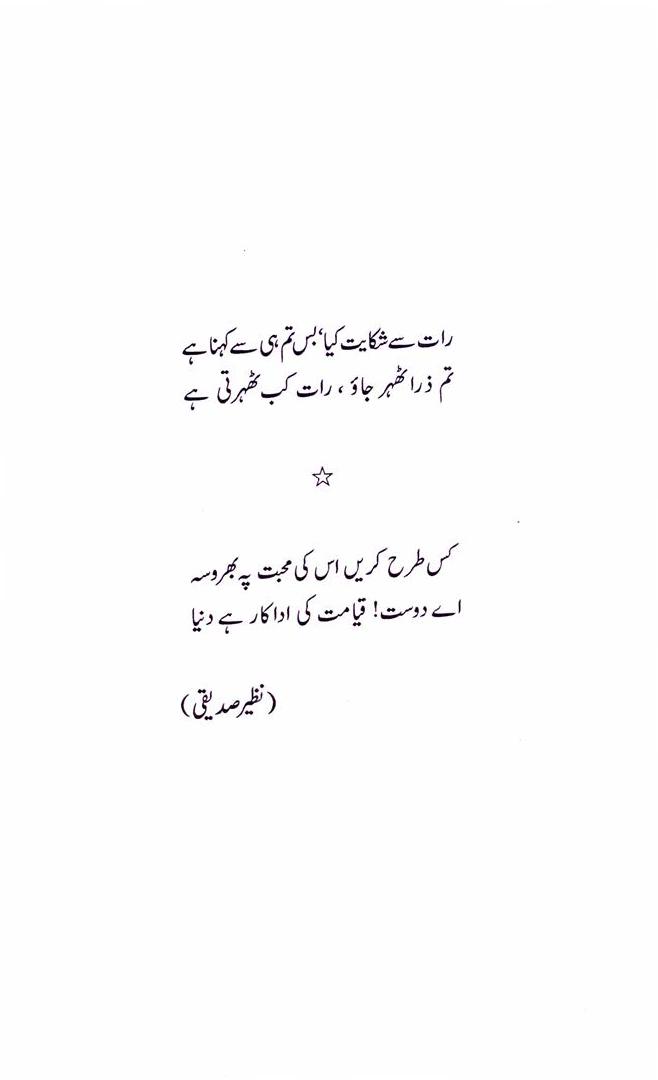 رات سے شکایت کیا‘ بس تم ہی سے کہنا ہے
تم ذرا ٹھہر جاؤ ، رات کب ٹھہرتی ہے
☆
کس طرح کریں اس کی محبت پہ بھروسہ
اے دوست! قیامت کی اداکار ہے دنیا
(نظیر صدیقی)